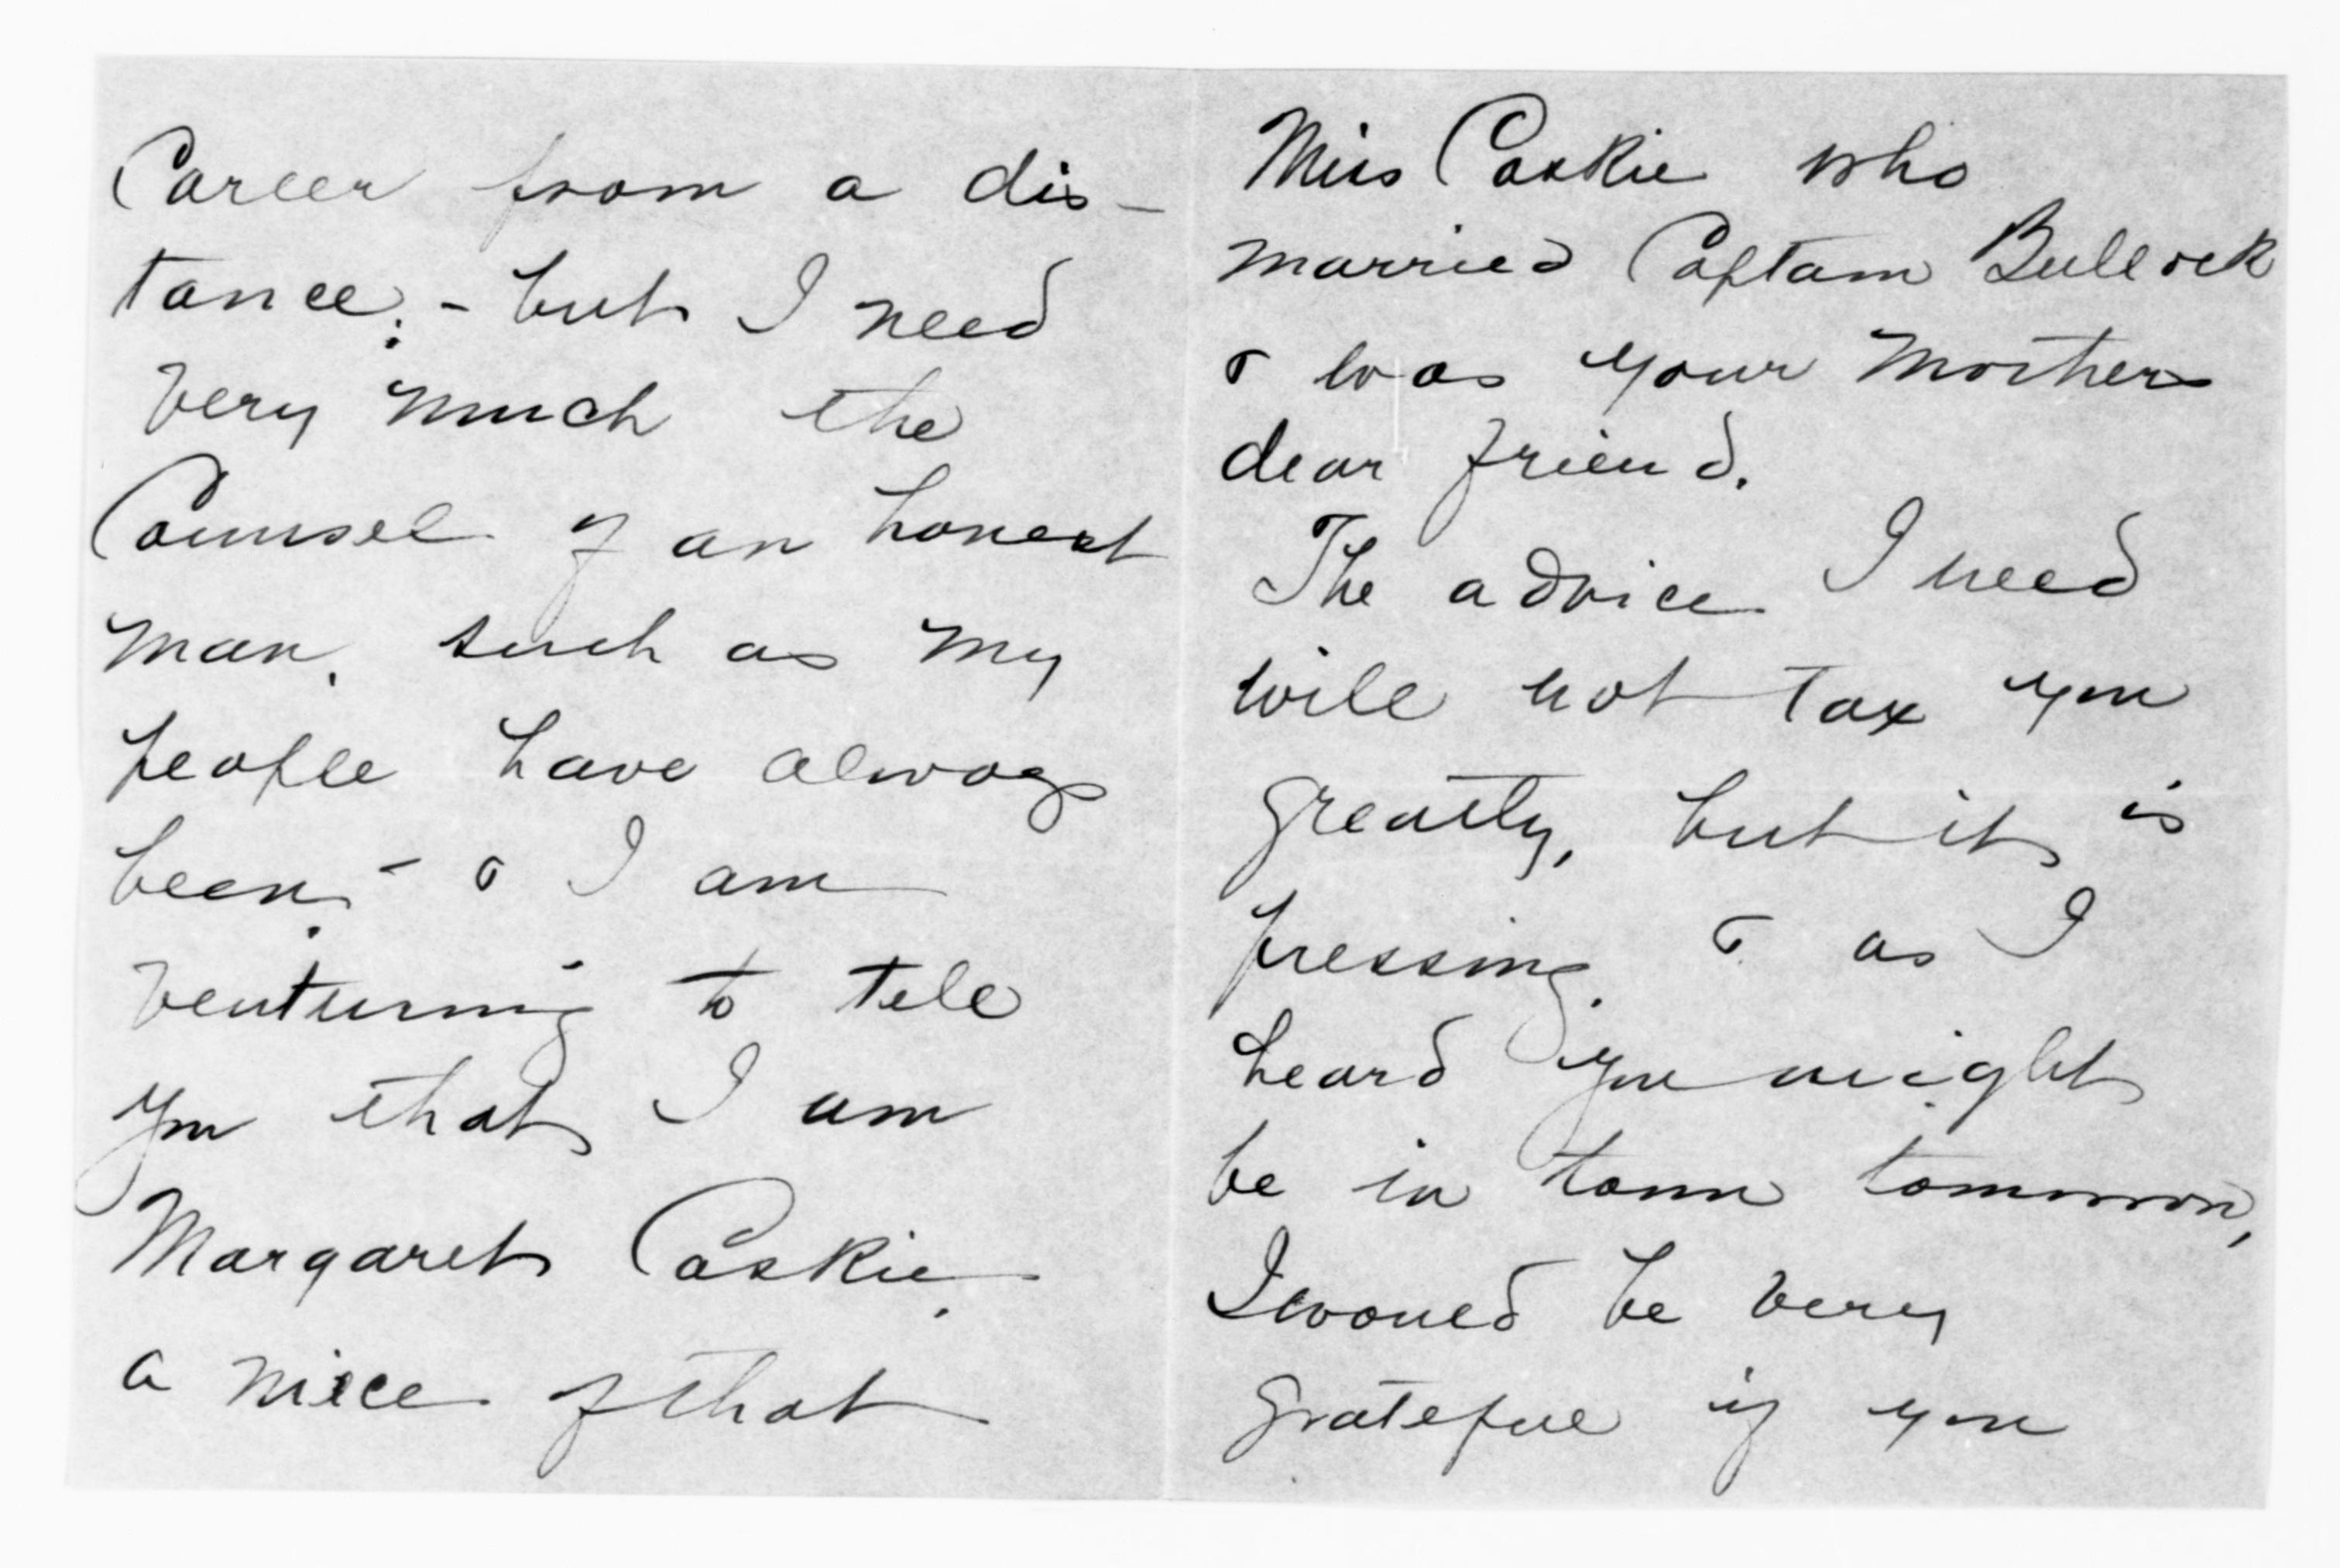 Career from a dis-
tance; - but I need
very much the
Counsel of an honest
man, such as my
people have always
been; - & I am
venturing to tell
you that I am
Margaret Caskie,
a niece of that
Miss Caskie who
married Captain Bullock
& was your mothers
dear friend.
The advice I need
will not tax you
greatly, but it is
pressing. & as I
heard you might
be in town tomorrow,
I would be very
grateful if you